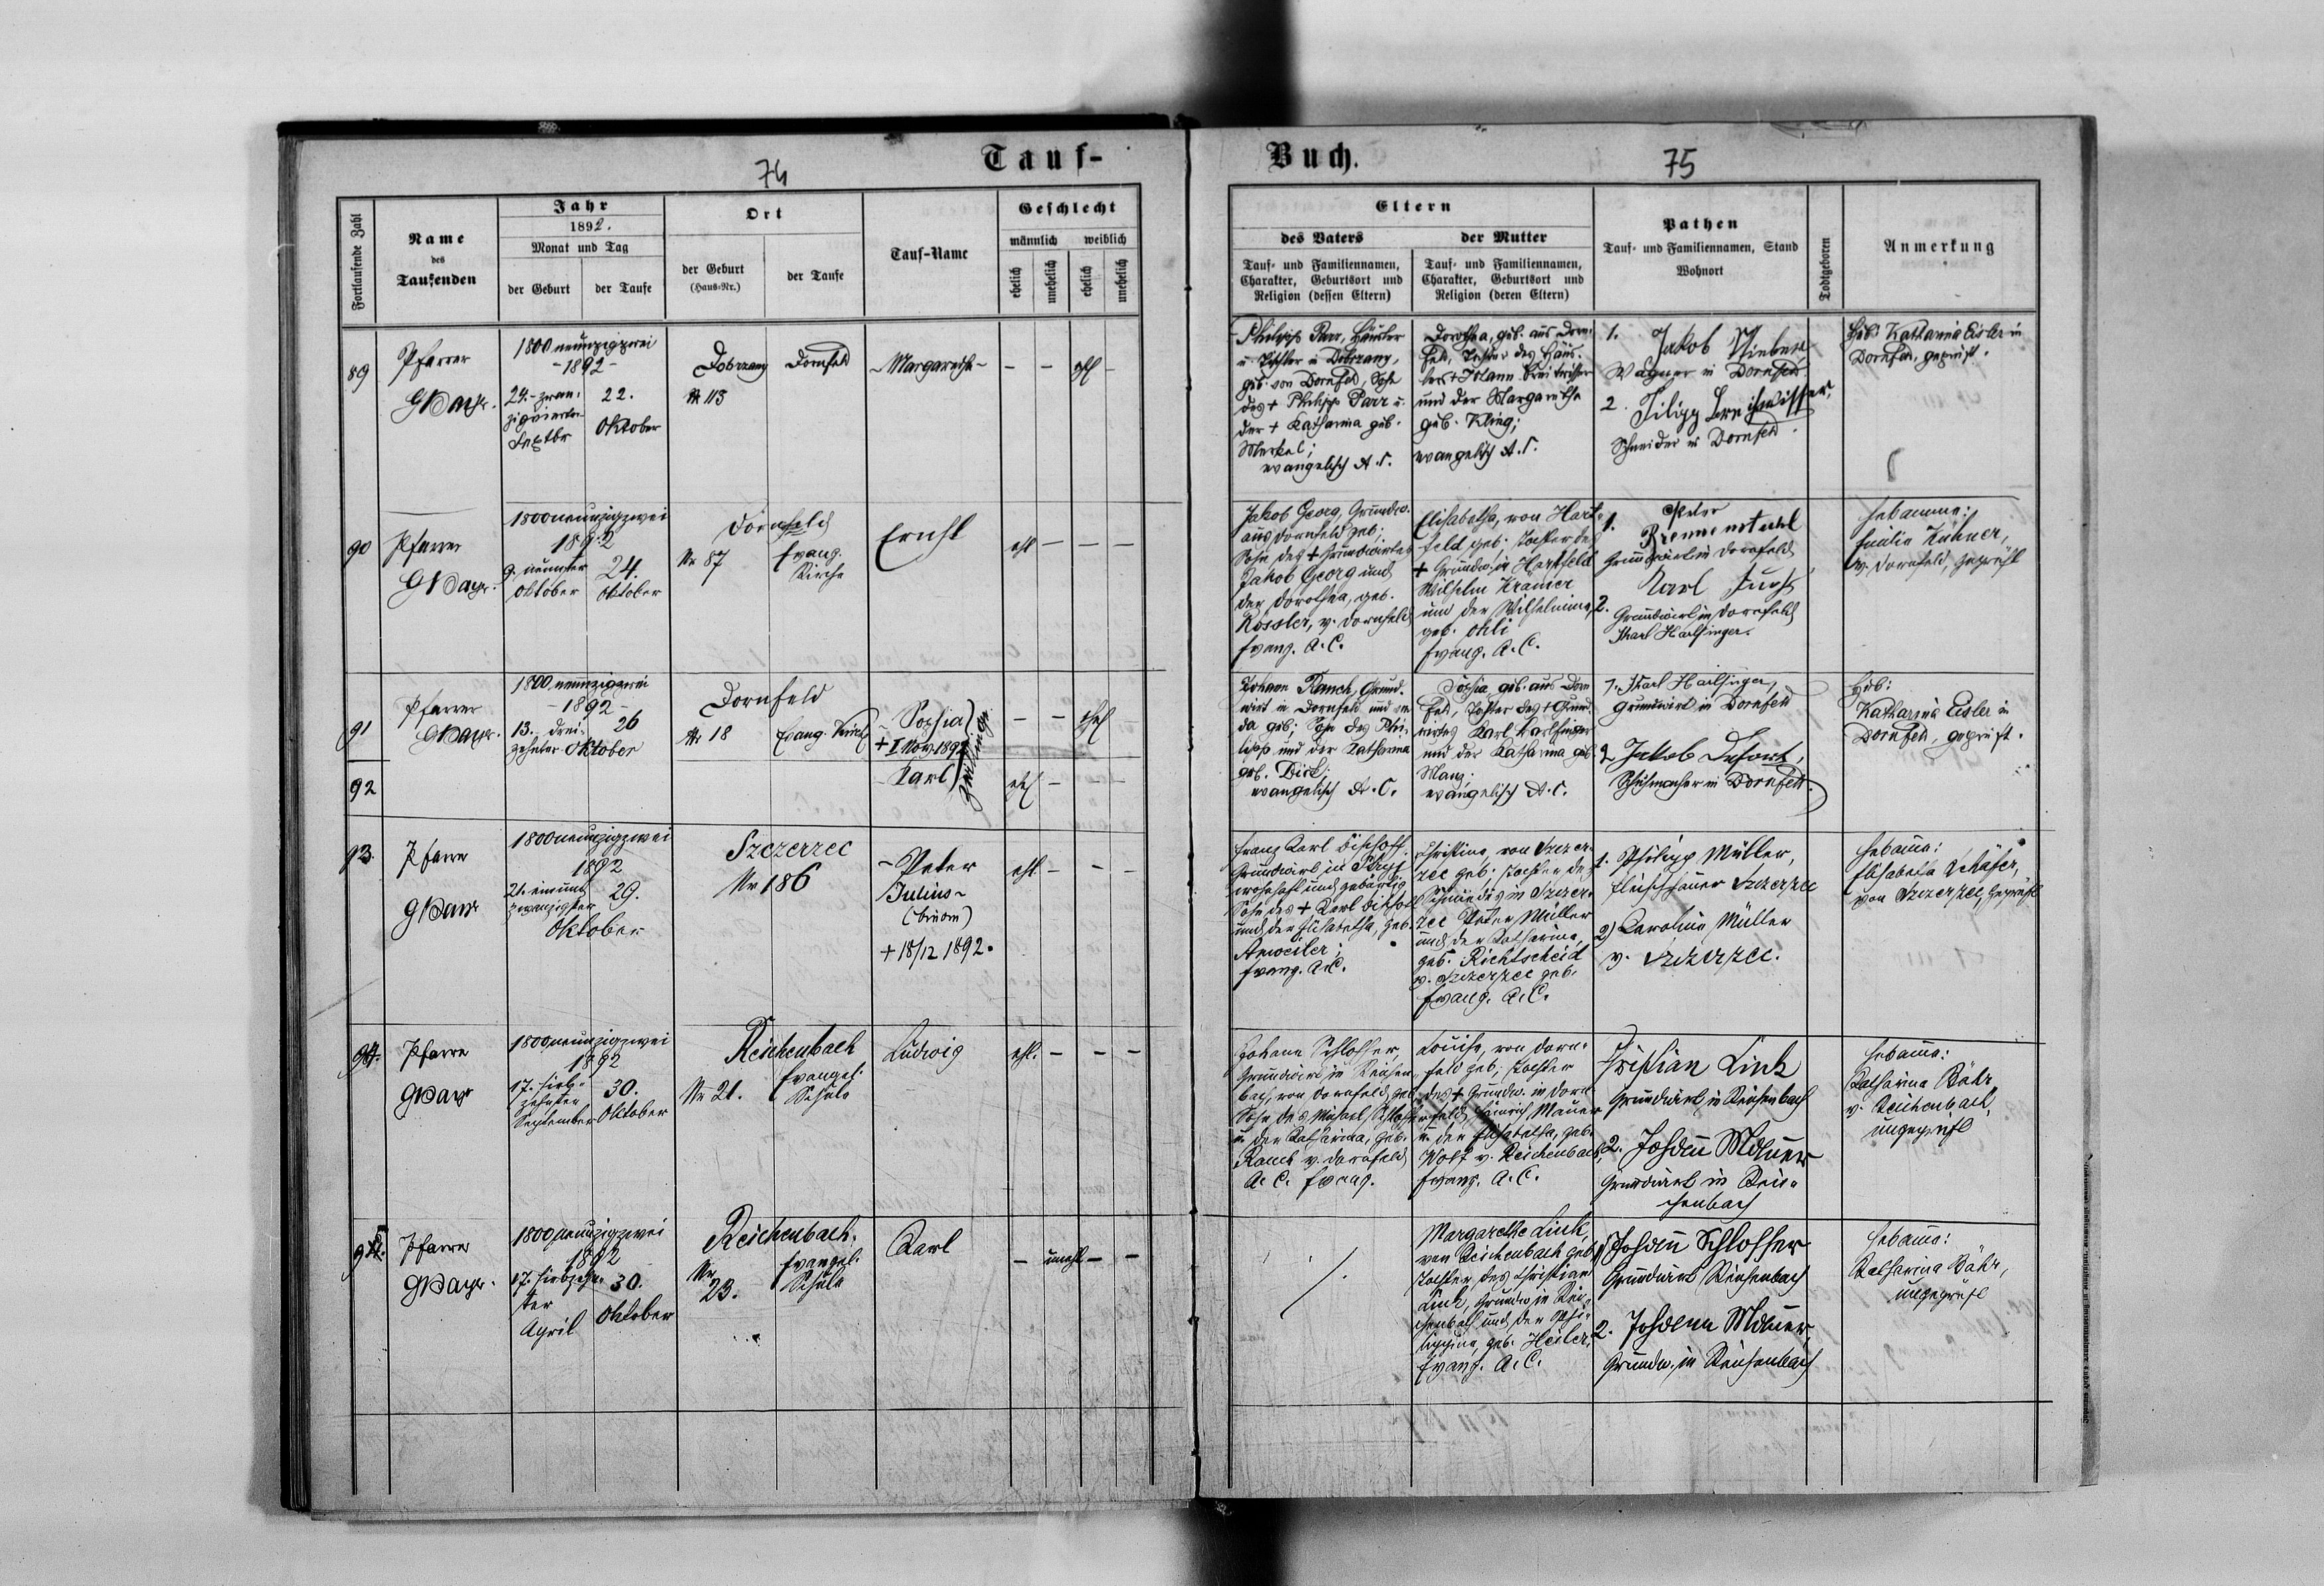 74
Tauf-
Fortlaufende Zahl
Name
des
Taufenden
Jahr
1892.
Monat und Tag
der Geburt
der Taufe
Ort
der Geburt
(Haus-Nr.)
der Taufe
Tauf-Name
Geschlecht
männlich
weiblich
ehelich
unehelich
ehelich
unehelich
89
Pfarrer
1800 neunzigzwei
-1892-
24.- zwan-
zigvierter
Septbr
22.
Oktober
Dobrzany
№ 113
Dornfeld
-Margarethe-
- - ehl -
90
Pfarrer
1800neunzigzwei
1892
9. neunter
Oktober
24.
Oktober
Dornfeld
Nr 87
Evang.
Kirche
Ernst
ehl - - -
91
Pfarrer
1800 neunzigzwei
-1892-
13. drei-
zehnter
26
Oktober
Dornfeld
№ 18
Evang. Kirche
- Sophia
+ I Nov. 1892
Zwillinge
- - ehel -
92
- Karl
ehel - - -
93.
Pfarrer
1800neunzigzwei
1892
21. einund
zwanzigster
29.
Oktober
Szczerzec
Nr 186
- Peter
Julius -
+ 18/12 1892.
ehl - - -
94.
Pfarrer
1800neunzigzwei
1892
17. sieb-
zehnter
September
30.
Oktober
Reichenbach
Nr 21.
Evangel.
Schule
Ludwig
ehl. - - -
95.
Pfarrer
1800neunzigzwei
1892
17. siebzehn-
ter
April
30.
Oktober
Reichenbach.
Nr
23.
Evangel.
Schule
Karl
- unehl - -
Buch.
75
Eltern
des Vaters
Tauf- und Familiennamen,
Charakter, Geburtsort und
Religion (dessen Eltern)
der Mutter
Tauf- und Familiennamen,
Charakter, Geburtsort und
Religion (deren Eltern)
Pathen
Tauf- und Familiennamen, Stand
Wohnort
Todtgeboren
Anmerkung
Philipp Parr, Häusler
u. Pächter in Dobrzany,
geb. von Dornfeld, Sohn
des + Philipp Parr u.
der + Katharina geb.
Merkel;
evangelisch A.C.
Dorothea, geb. aus Dorn-
feld, Tochter des Häus-
lers + Johann
und der Margarethe
geb. Kling;
evangelisch A.C.
1. Jakob
Wagner in Dornfeld
2.
Schneider in Dornfeld.
Heb: Katharina Eisler in
Dornfeld, geprüft.
Jakob Georg, Grundw.
aus Dornfeld geb;
Sohn des + Grundwirtes
Jakob Georg und
der Dorothea, geb.
Kossler, v. Dornfeld
Evang. A.C.
Elisabetha, von Hart-
feld geb. Tochter des
+ Grundw. in Hartfeld
Wilhelm Kramer
und der Wilhelmina,
geb. Ohli
Evang. A.C.
1. Peter
Brennenstuhl
Grundwirt in Dornfeld
Karl
2.
Grundwirt in Dornfeld
Karl Harlfinger.
Hebamme:
Emilie Kühner,
v. Dornfeld, geprüft
Johann Rauch, Grund-
wirt in Dornfeld und
da geb; Sohn des Phi-
lipp und der Katharina
geb. Dick;
evangelisch A.C.
Sophia geb. aus Dorn
feld, Tochter des + Grund-
wirtes Karl Harlfinger
und der Katharina geb
Manz;
evangelisch A.C.
1. Karl Harlfinger,
Grundwirt in Dornfeld
2. Jakob Defort,
Schuhmacher in Dornfeld.
Heb:
Katharina Eisler in
Dornfeld, geprüft.
Franz Karl Bischoff,
Grundwirt in Stryj
wohnhaft und gebürtig
Sohn des + Karl Bischoff
und der Elisabetha, geb.
Anweiler;
Evang. A.C.
Christina, von Szczer-
zec geb. Tochter des
Schmiedes in Szczer-
zec Peter Müller
und der Katharina,
geb. Richtscheid
v. Szczerzec geb.
Evang. A.C.
1. Philipp Müller,
Fleischhauer Szczerzec
2) Karoline Müller
v. Szczerzec.
Hebamme:
Elisabetha Schäfer,
von Szczerzec, geprüft
Johann Schlosser,
Grundwirt in Reichen-
bach, von Dornfeld, geb
Sohn des Michael Schlosser
u. der Katharina, geb.
Rauch v. Dornfeld
A.C. Evang.
Louise, von Dorn-
feld geb; Tochter
des + Grundw. in Dorn-
feld Heinrich Mauer
u. der Elisabetha, geb.
Wolf v. Reichenbach,
Evang. A.C.
Christian Link
Grundwirt in Reichenbach
2. Johann Mauer
Grundwirt in Rei-
chenbach
Hebamme:
Katharina Bähr
v. Reichenbach,
ungeprüft
Margarethe Link,
von Reichenbach geb
Tochter des Christian
Link, Grundw. in Rei-
chenbach und der Phi-
lippina, geb. Heiler,
Evang. A.C.
1) Johann Schlosser
Grundwirt Reichenbach
2. Johann Mauer,
Grundw. in Reichenbach
Hebamme:
Katharina Bähr,
ungeprüft